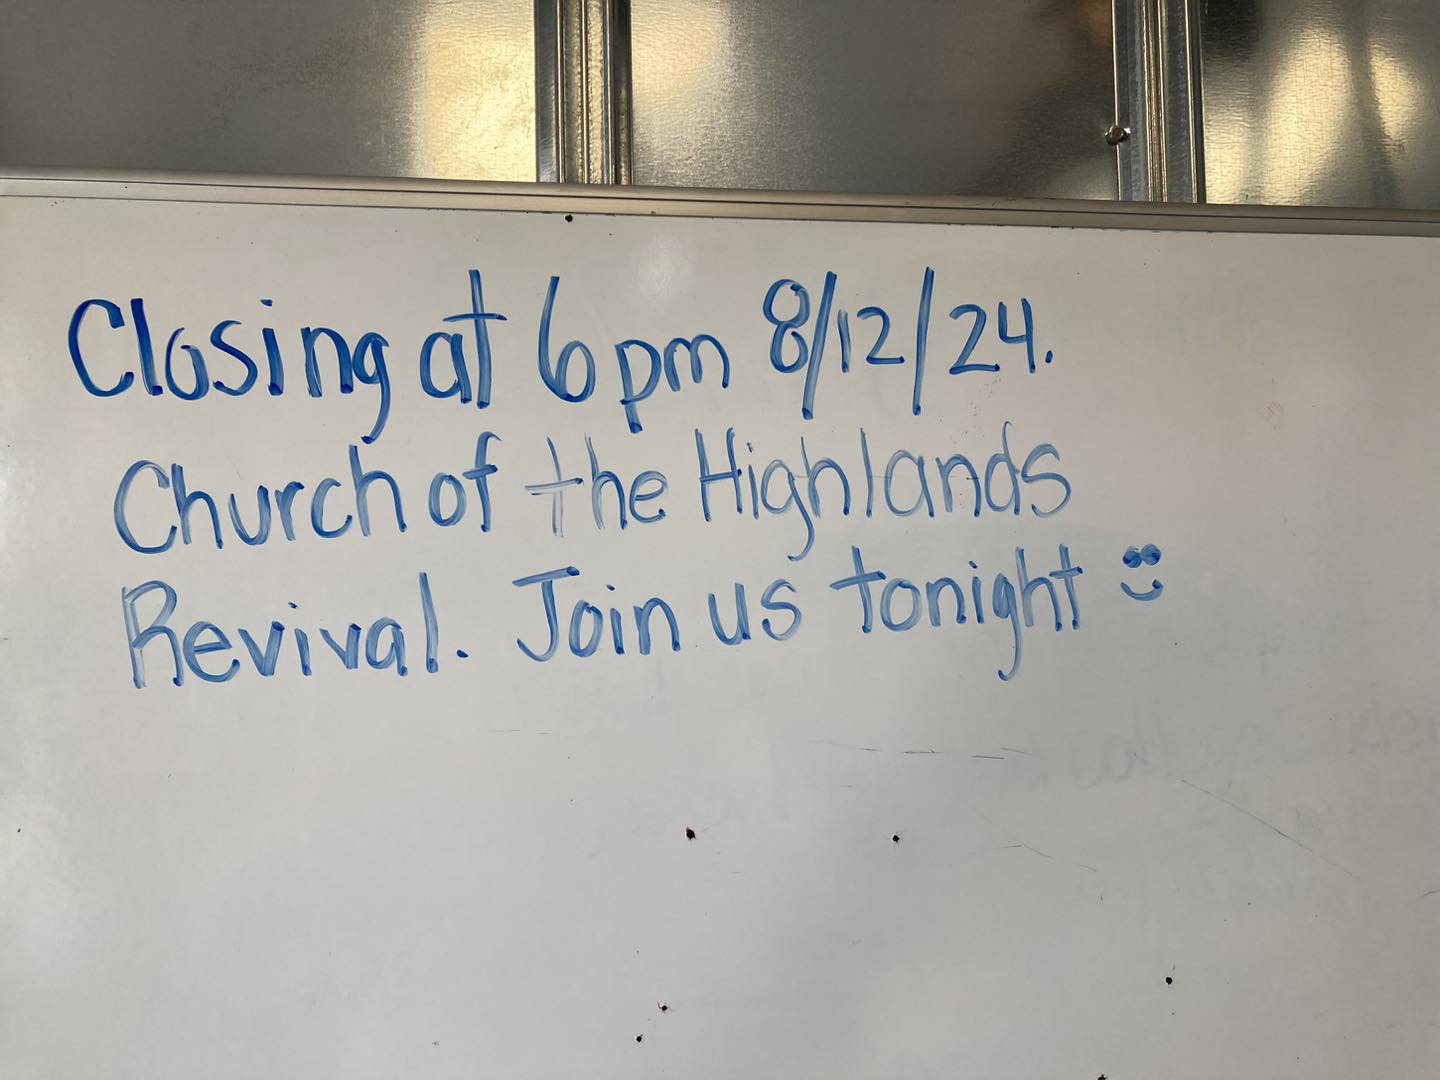 Closing at 6pm 8/12/24.
Church of the Highlands
Revival. Join us tonight